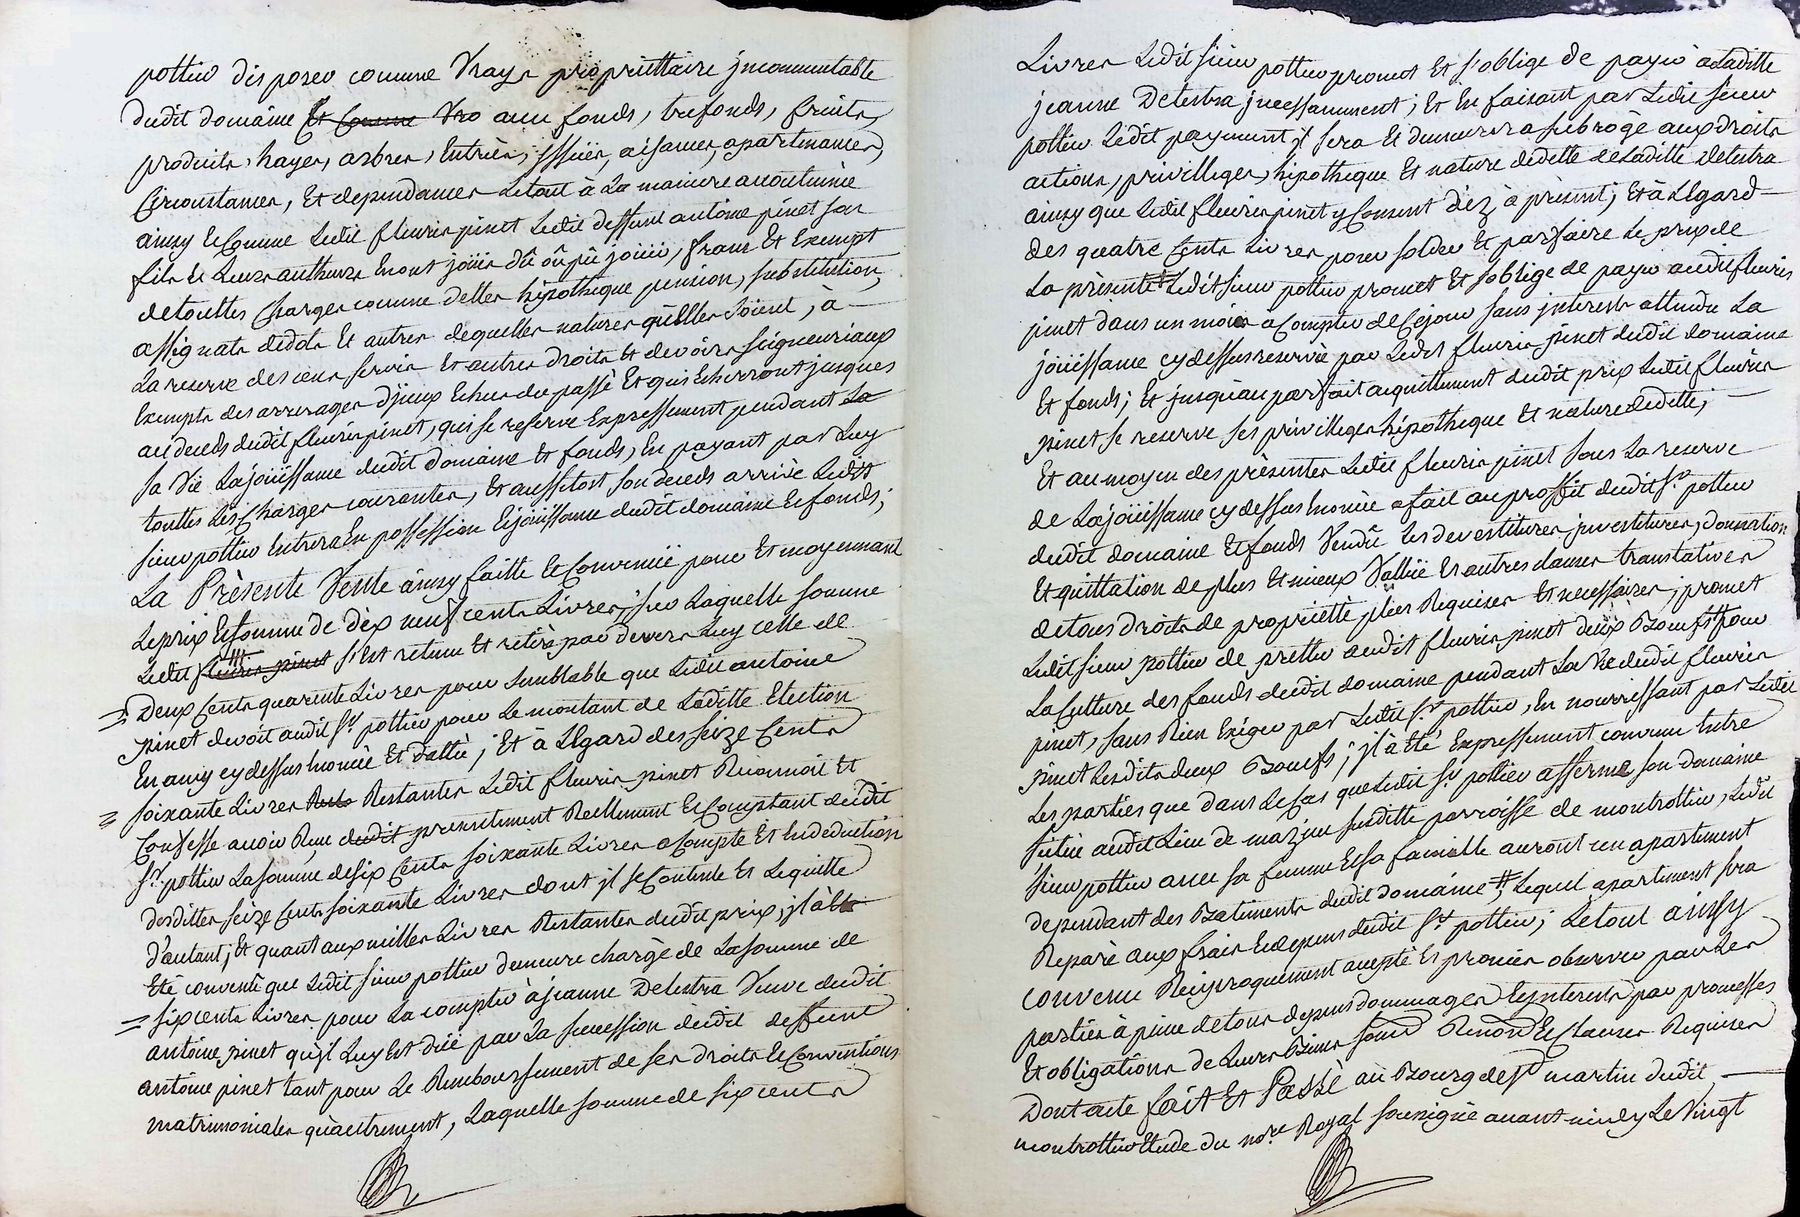 pottier disposer comme Vraye propriettaire jncommutable
dudit domaine Et Comme Vro avec fonds, trefonds, fruits,
produits, hayes, arbres, Entrées, jssües, aisances, apartenances,
Circonstances, Et dependances Letout à La maniere accoutumée
ainsy Et Comme Ledit fleurie pinet Ledit deffunt antoine pinet son
fils Et Leurs autheurs En ont joüis dû où pû joüir, franc Et Exempt
detouttes Charges comme dettes hipotheque pension, substitution,
assignats dedots Et autres dequelles natures qu'Elles soient, à
La reserve des cens servis Et autres droits Et devoirs seigneuriaux
Exempts des arrerages d'jceux Echus du passé Et qui Echerront jusques
au deceds dudit fleurie pinet, qui se reserve Expressement pendant La
sa Vie La joüissance dudit domaine Et fonds, En payant par Luy
touttes Les Charges courantes, Et aussitost son deceds arrivé Ledit
sieur pottier Entrera En possession Et joüissance dudit domaine Et fonds;
La Presente Vente ainsy faitte Et Convenüe pour Et moyennant
Le prix Et somme de dix neuf cents Livres, sur Laquelle somme
Ledit fleurie pinet s'Est retenu Et retiré par devers Luy celle de
Deux Cents quarente Livres pour semblable que Ledit antoine
pinet devoit audit Sr pottier pour Le montant de Laditte Election
En amy cy dessus Enoncée Et Dattée; Et à L'Egard des seize Cents
soixante Livres Resto Restantes Ledit fleurie pinet Reconnoit Et
Confesse avoir Reçu dudit presentement Reellement Et Comptant dudit
Sr pottier La somme de six Cents soixante Livres a Compte Et En deduction
desdittes seize Cents soixante Livres dont jl se Contente Et Le quitte
d'autant; Et quant aux milles Livres Restantes dudit prix, jl à
Eté convenû que Ledit sieur pottier demeure chargé de La somme de
six cents Livres pour La compter à jeanne Delestra Veuve dudit
antoine pinet qu'jl Luy Est düe par La succession dudit deffunt
antoine pinet tant pour Le Remboursement de ses droits Et Conventions
matrimoniales qu'autrement, Laquelle somme de six cents
Livres Ledit sieur pottier promet Et s'oblige de payer à Laditte
jeanne Delestra jncessamment; Et En faisant par Ledit sieur
pottier Ledit payement jl sera Et demeurera subrogé aux droits
actions, privilleges, hipotheque Et nature dedette deLaditte Delestra
ainsy que Ledit fleurie pinet y Consent déz à présent; Et à L'Egard
des quatre Cents Livres pour solder Et parfaire Le prix de
La présente Ledit sieur pottier promet Et s'oblige de payer audit fleurie
pinet dans un mois a Compter de Cejour sans jnterests attendu La
joüissance cy dessus reservée par Ledit fleurie pinet dudit domaine
Et fonds; Et jusqu'au parfait acquittement dudit prix Ledit fleurie
pinet se reserve ses privilleges hipotheque Et nature dedette;
Et au moyen des présentes Ledit fleurie pinet sous La reserve
de La joüissance cy dessus Enoncée a fait au proffit dudit Sr pottier
dudit domaine Et fonds Vendû Les devestitures jnvestitures, donnation
Et quittation de plus Et mieux Vallüe Et autres clauses translatives
de tous droits de proprietté plus Requises Et necessaires; promet
Ledit sieur pottier de pretter audit fleurie pinet deux Boeufs pour
La Culture des fonds dudit domaine pendant La Vie dudit fleurie
pinet, sans Rien Exiger par Ledit Sr pottier, En nourrissant par Ledit
pinet Lesdits deux Boeufs; jl à Eté Expressement convenu Entre
Les parties que dans Le Cas que Ledit Sr pottier afferme son domaine
scitüé audit Lieu de mazieu susditte parroisse de montrottier, Ledit
sieur pottier avec sa femme Et sa famille auront un apartement
dependant des Batiments dudit domaine, Lequel apartement sera
Reparé aux frais Et depens dudit Sr pottier; Le tout ainsy
convenu Reciproquement accepté Et promis observer par Les
parties à peine de tous depens dommages Et jnterests par promesses
Et obligations de Leurs Biens soum Renon Et Clauses Requises
Dont acte fait Et Passé au Bourg de St martin dudit
montrottier Etude du nore Royal soussigné avant midy Le Vingt